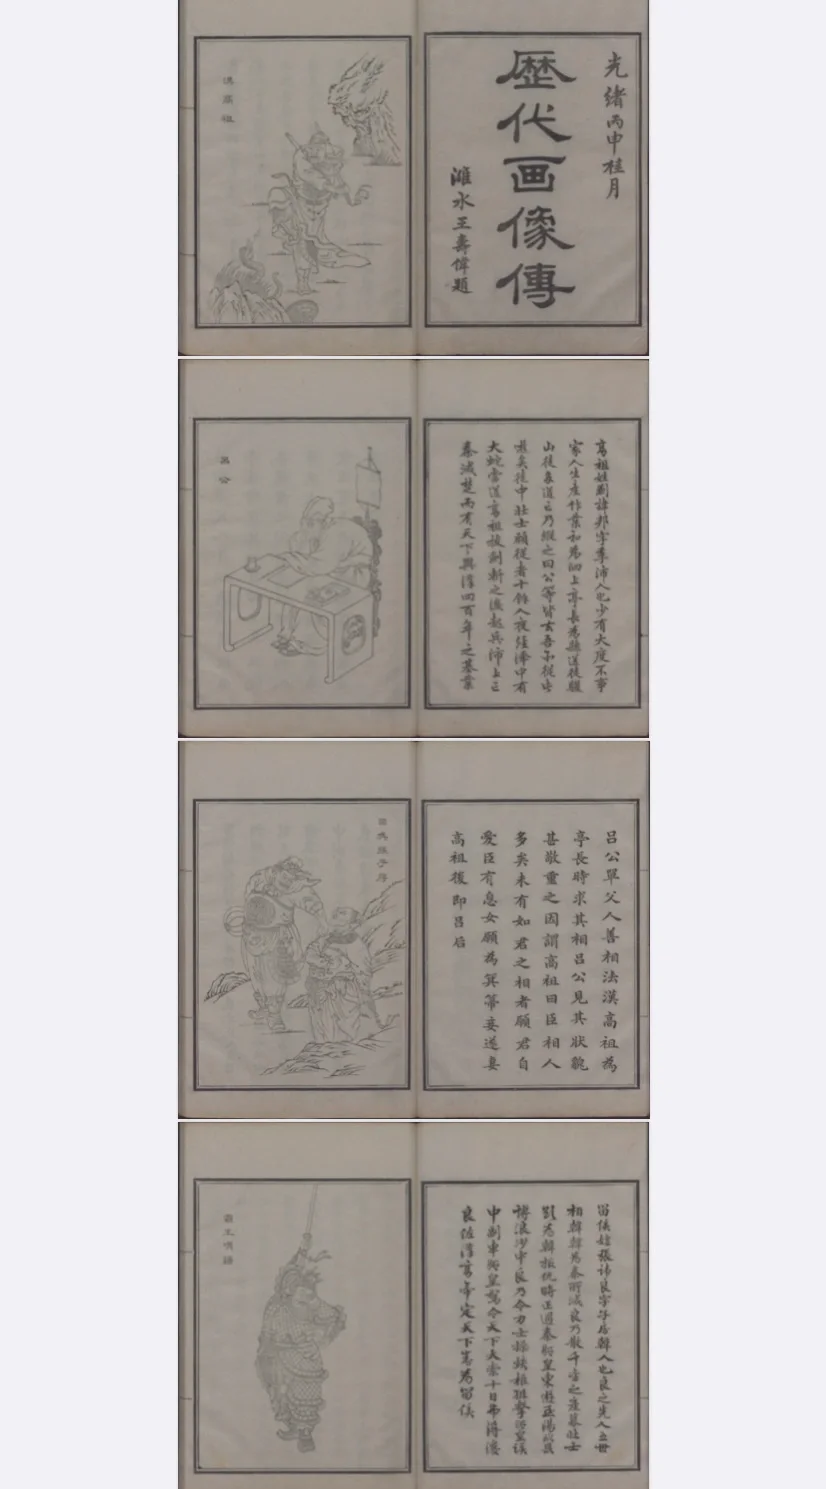 光緒丙申桂月
歷代画像傳
濰水王壽偉題
漢高祖
高祖姓劉諱邦字季沛人也少有大度不事
家人生產作業初為泗上亭長為縣送徒驪
山徒多道亡乃縱之曰公等皆去吾亦從此
逝矣徒中壯士願從者十餘人夜經澤中有
大蛇當道高祖拔劍斬之後起兵沛上亡
秦滅楚而有天下興漢四百年之基業
呂公
呂公單父人善相法漢高祖為
亭長時求其相呂公見其狀貌
甚敬重之因謂高祖曰臣相人
多矣未有如君之相者願君自
愛臣有息女願為箕箒妾遂妻
高祖後即呂后
留侯張子房
留侯姓張諱良字子房韓人也良之先人五世
相韓韓為秦所滅良乃散千金之產募壯士
為韓報仇時正遇秦始皇東遊至陽武縣
博浪沙中良乃命力士操鉄椎狙擊始皇誤
中副車始皇驚令天下大索十日弗得後
良佐漢高帝定天下封為留侯
霸王項籍